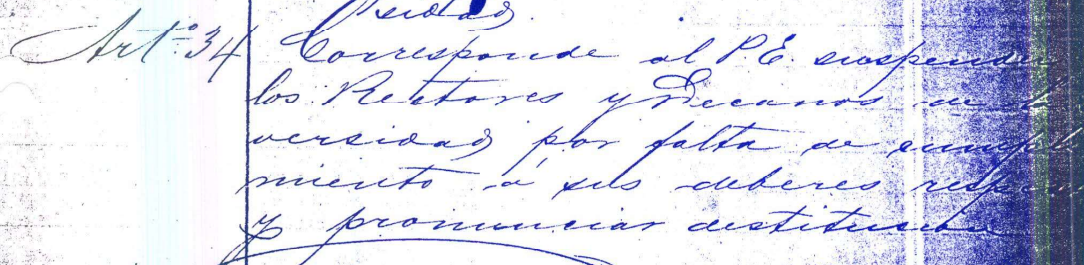 versidad.
Artº 34 Corresponde al P.E. suspender
los Rectores y Decanos de
versidad por falta de cumpli
miento á sus deberes
y pronunciar destitución